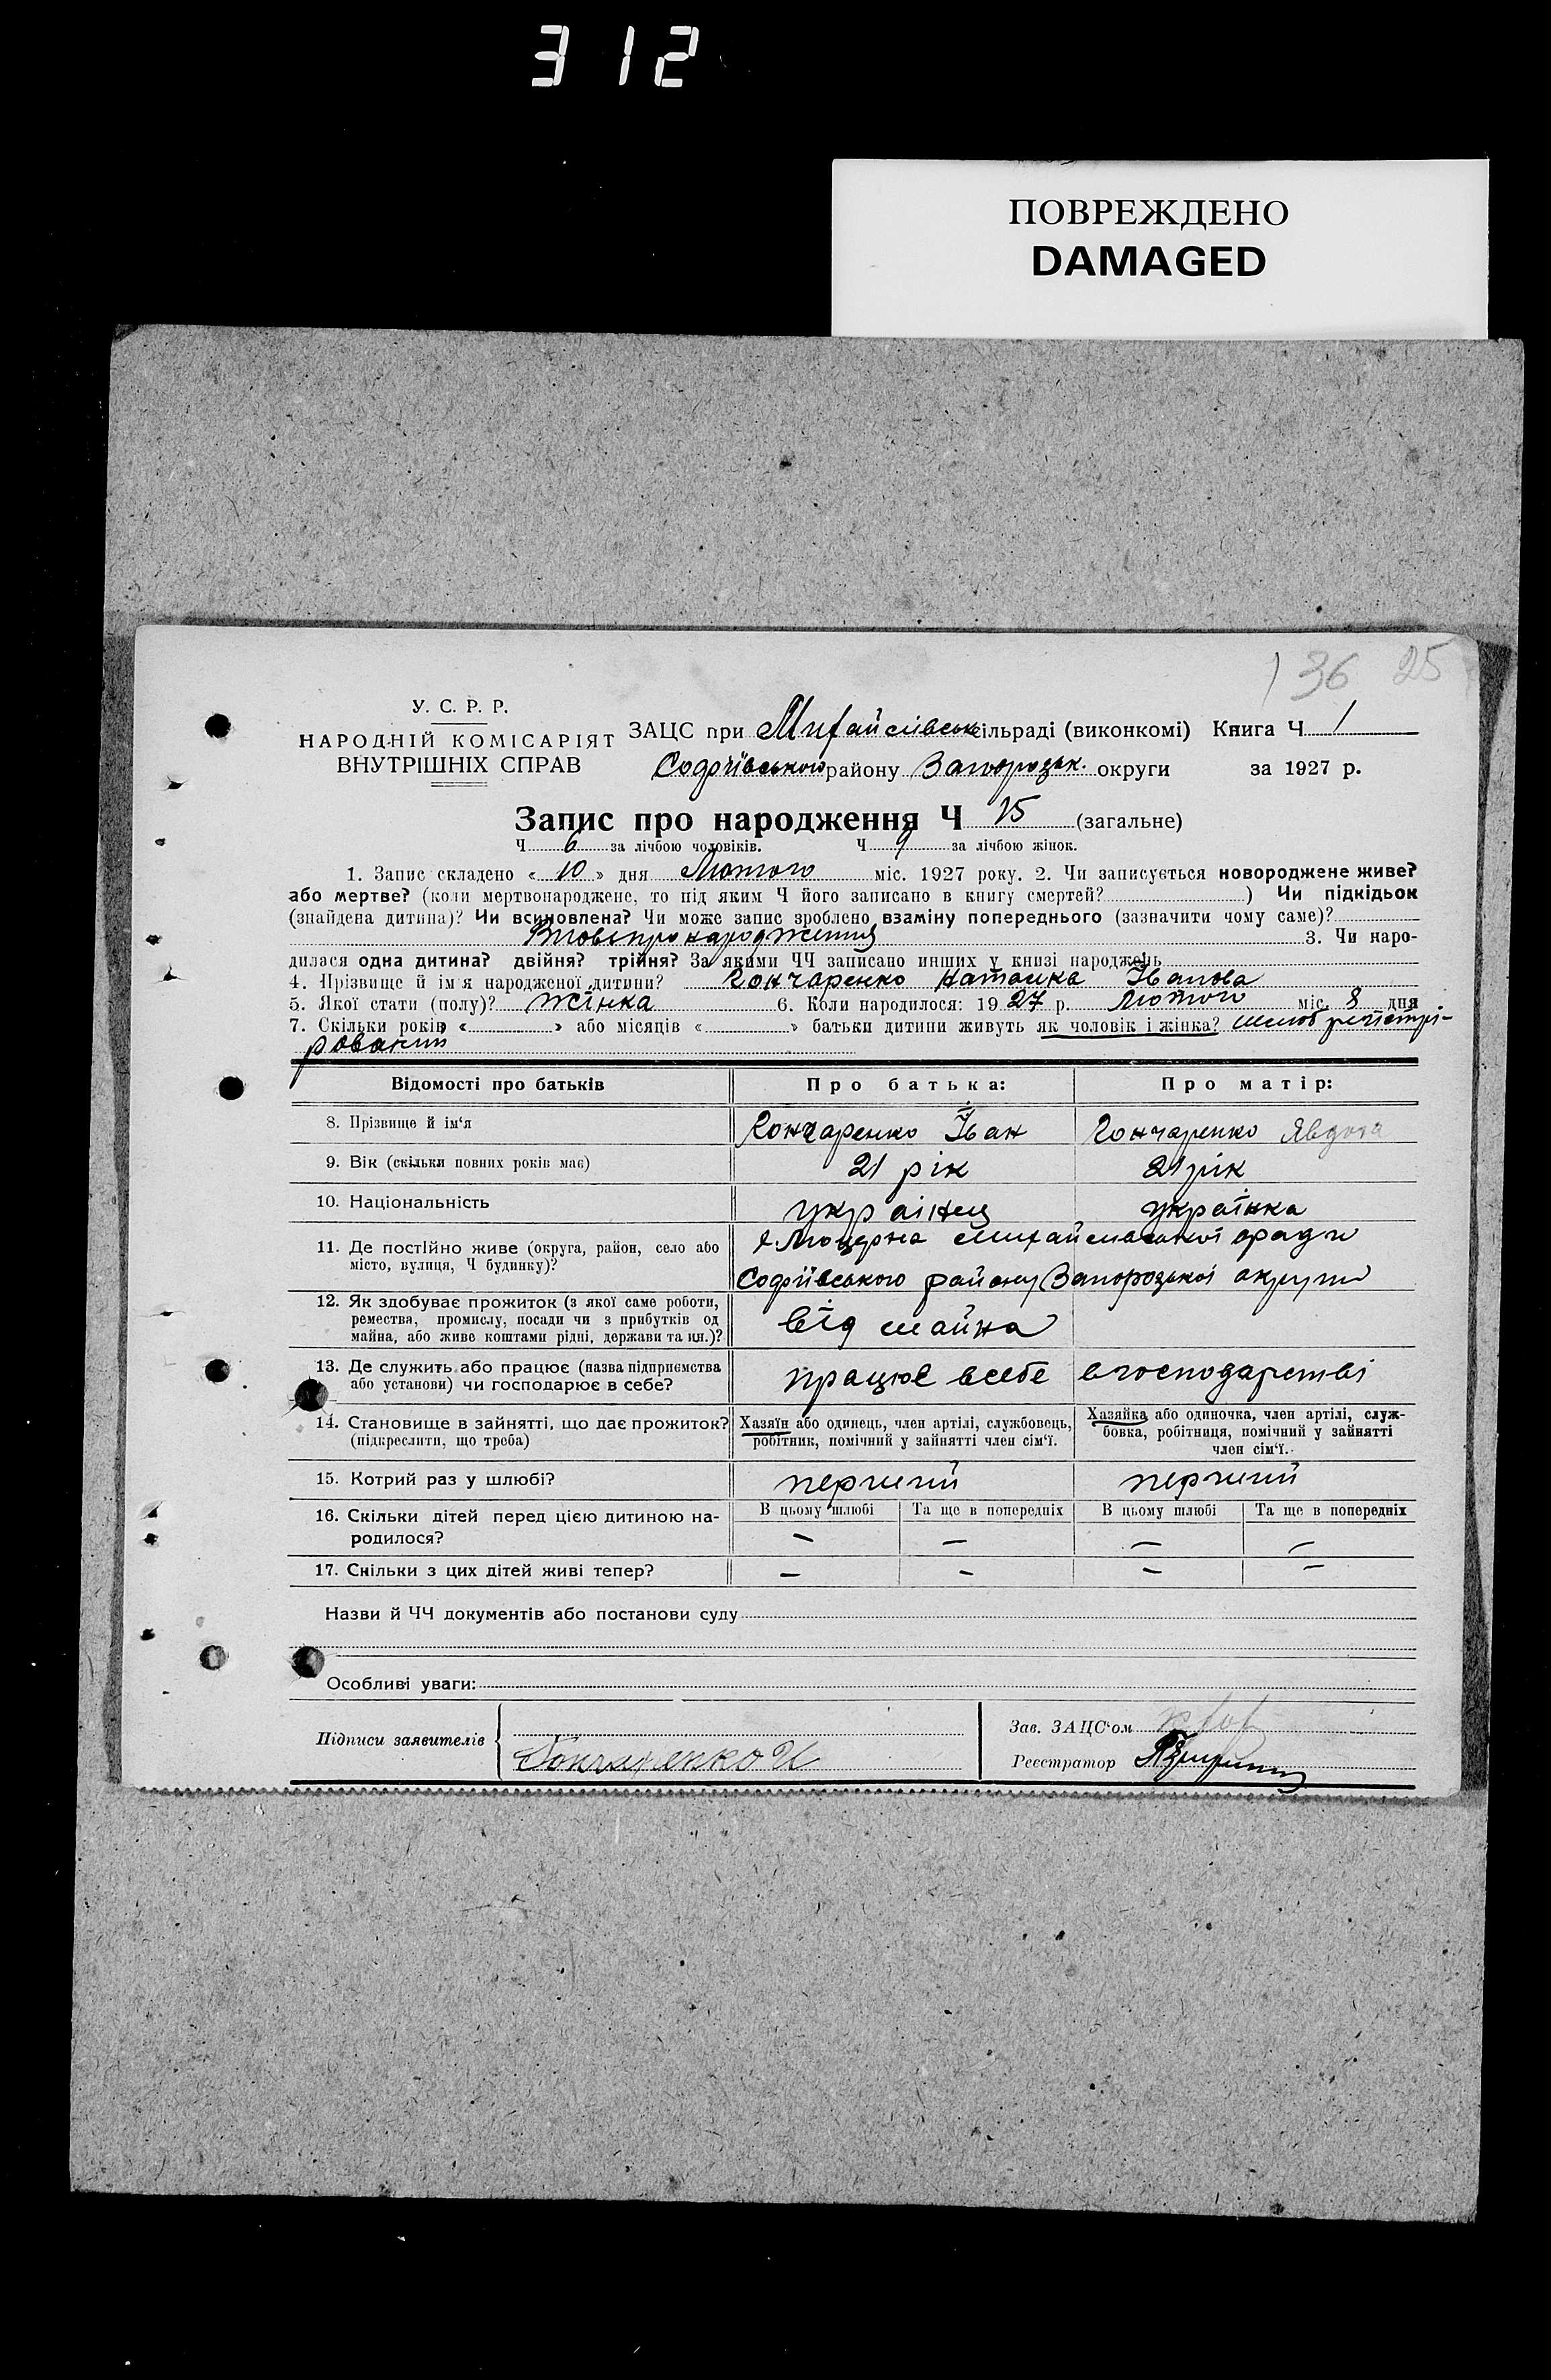 312
ПОВРЕЖДЕНО
DAMAGED
136 25
У. С. Р. Р.
НАРОДНІЙ КОМІСАРІЯТ
ВНУТРІШНІХ СПРАВ
ЗАЦС при Михайлівськ сільраді (виконкомі) Книга Ч 1
Софіївського району Запорозьк. округи за 1927 р.
Запис про народження Ч 15 (загальне)
Ч 6 за лічбою чоловіків. Ч 9 за лічбою жінок.
1. Запис складено « 10 » дня Лютого міс. 1927 року. 2. Чи записується новороджене живе?
або мертве? (коли мертвонароджене, то під яким Ч його записано в книгу смертей? ) Чи підкідьок
(знайдена дитина)? Чи всиновлена? Чи може запис зроблено взаміну попереднього (зазначити чому саме)?
про народження 3. Чи наро-
дилася одна дитина? двійня? трійня? За якими ЧЧ записано инших у книзі народжень
4. Прізвище й ім'я народженої дитини? Гончаренко Наталка Іванова
5. Якої стати (полу)? жінка 6. Коли народилося: 1927 р. Лютого міс. 8 дня
7. Скільки років « » або місяців « » батьки дитини живуть як чоловік і жінка? шлюб регістрі-
рований
Відомості про батьків Про батька: Про матір:
8. Прізвище й ім'я Гончаренко Іван Гончаренко Явдоха
9. Вік (скільки повних років має) 21 рік 21 рік
10. Національність українец українка
11. Де постійно живе (округа, район, село або місто, вулиця, Ч будинку)? х. Люцерна Михайлівської сради
Софіївського району Запорозької округи
12. Як здобуває прожиток (з якої саме роботи,
ремества, промислу, посади чи з прибутків од
майна, або живе коштами рідні, держави та ин.)? від майна
13. Де служить або працює (назва підприємства
або установи) чи господарює в себе? працює в себе в господарстві
14. Становище в зайнятті, що дає прожиток?
(підкреслити, що треба)
Хазяїн або одинець, член артілі, службовець,
робітник, помічний у зайнятті член сім'ї.
Хазяйка або одиночка, член артілі, служ-
бовка, робітниця, помічний у зайнятті
член сім'ї.
15. Котрий раз у шлюбі? перший перший
16. Скільки дітей перед цією дитиною на-
родилося?
В цьому шлюбі Та ще в попередніх В цьому шлюбі Та ще в попередніх
— — — —
17. Скільки з цих дітей живі тепер? — — — —
Назви й ЧЧ документів або постанови суду
Особливі уваги:
Підписи заявителів Гончаренко И
Зав. ЗАЦС'ом
Реєстратор